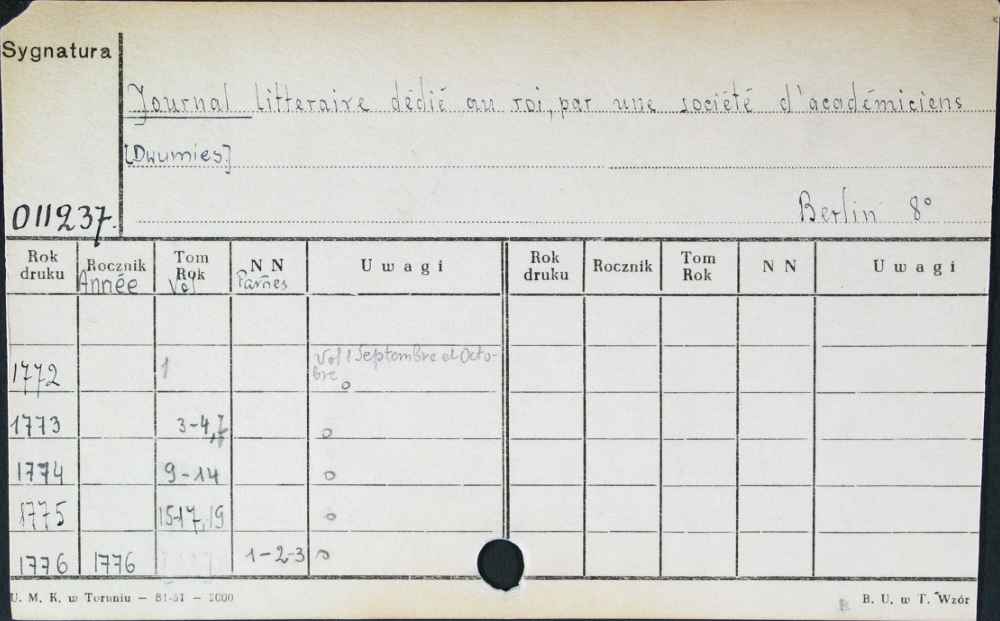 Sygnatura
Journal litteraire dédié au roi, par une société d'académiciens
[Dwumies]
011237.
Berlin 8°
Rok druku Rocznik Tom Rok N N Uwagi Rok druku Rocznik Tom Rok N N Uwagi
Année Vol
1772 1 Vol 1 Septembre et Octo-
bre o
1773 3-4,7 o
1774 9-14 o
1775 15-17,19 o
1776 1776 1-2-3 o
U. M. K. w Toruniu — 81-51 — 2000
B. U. w T. Wzór